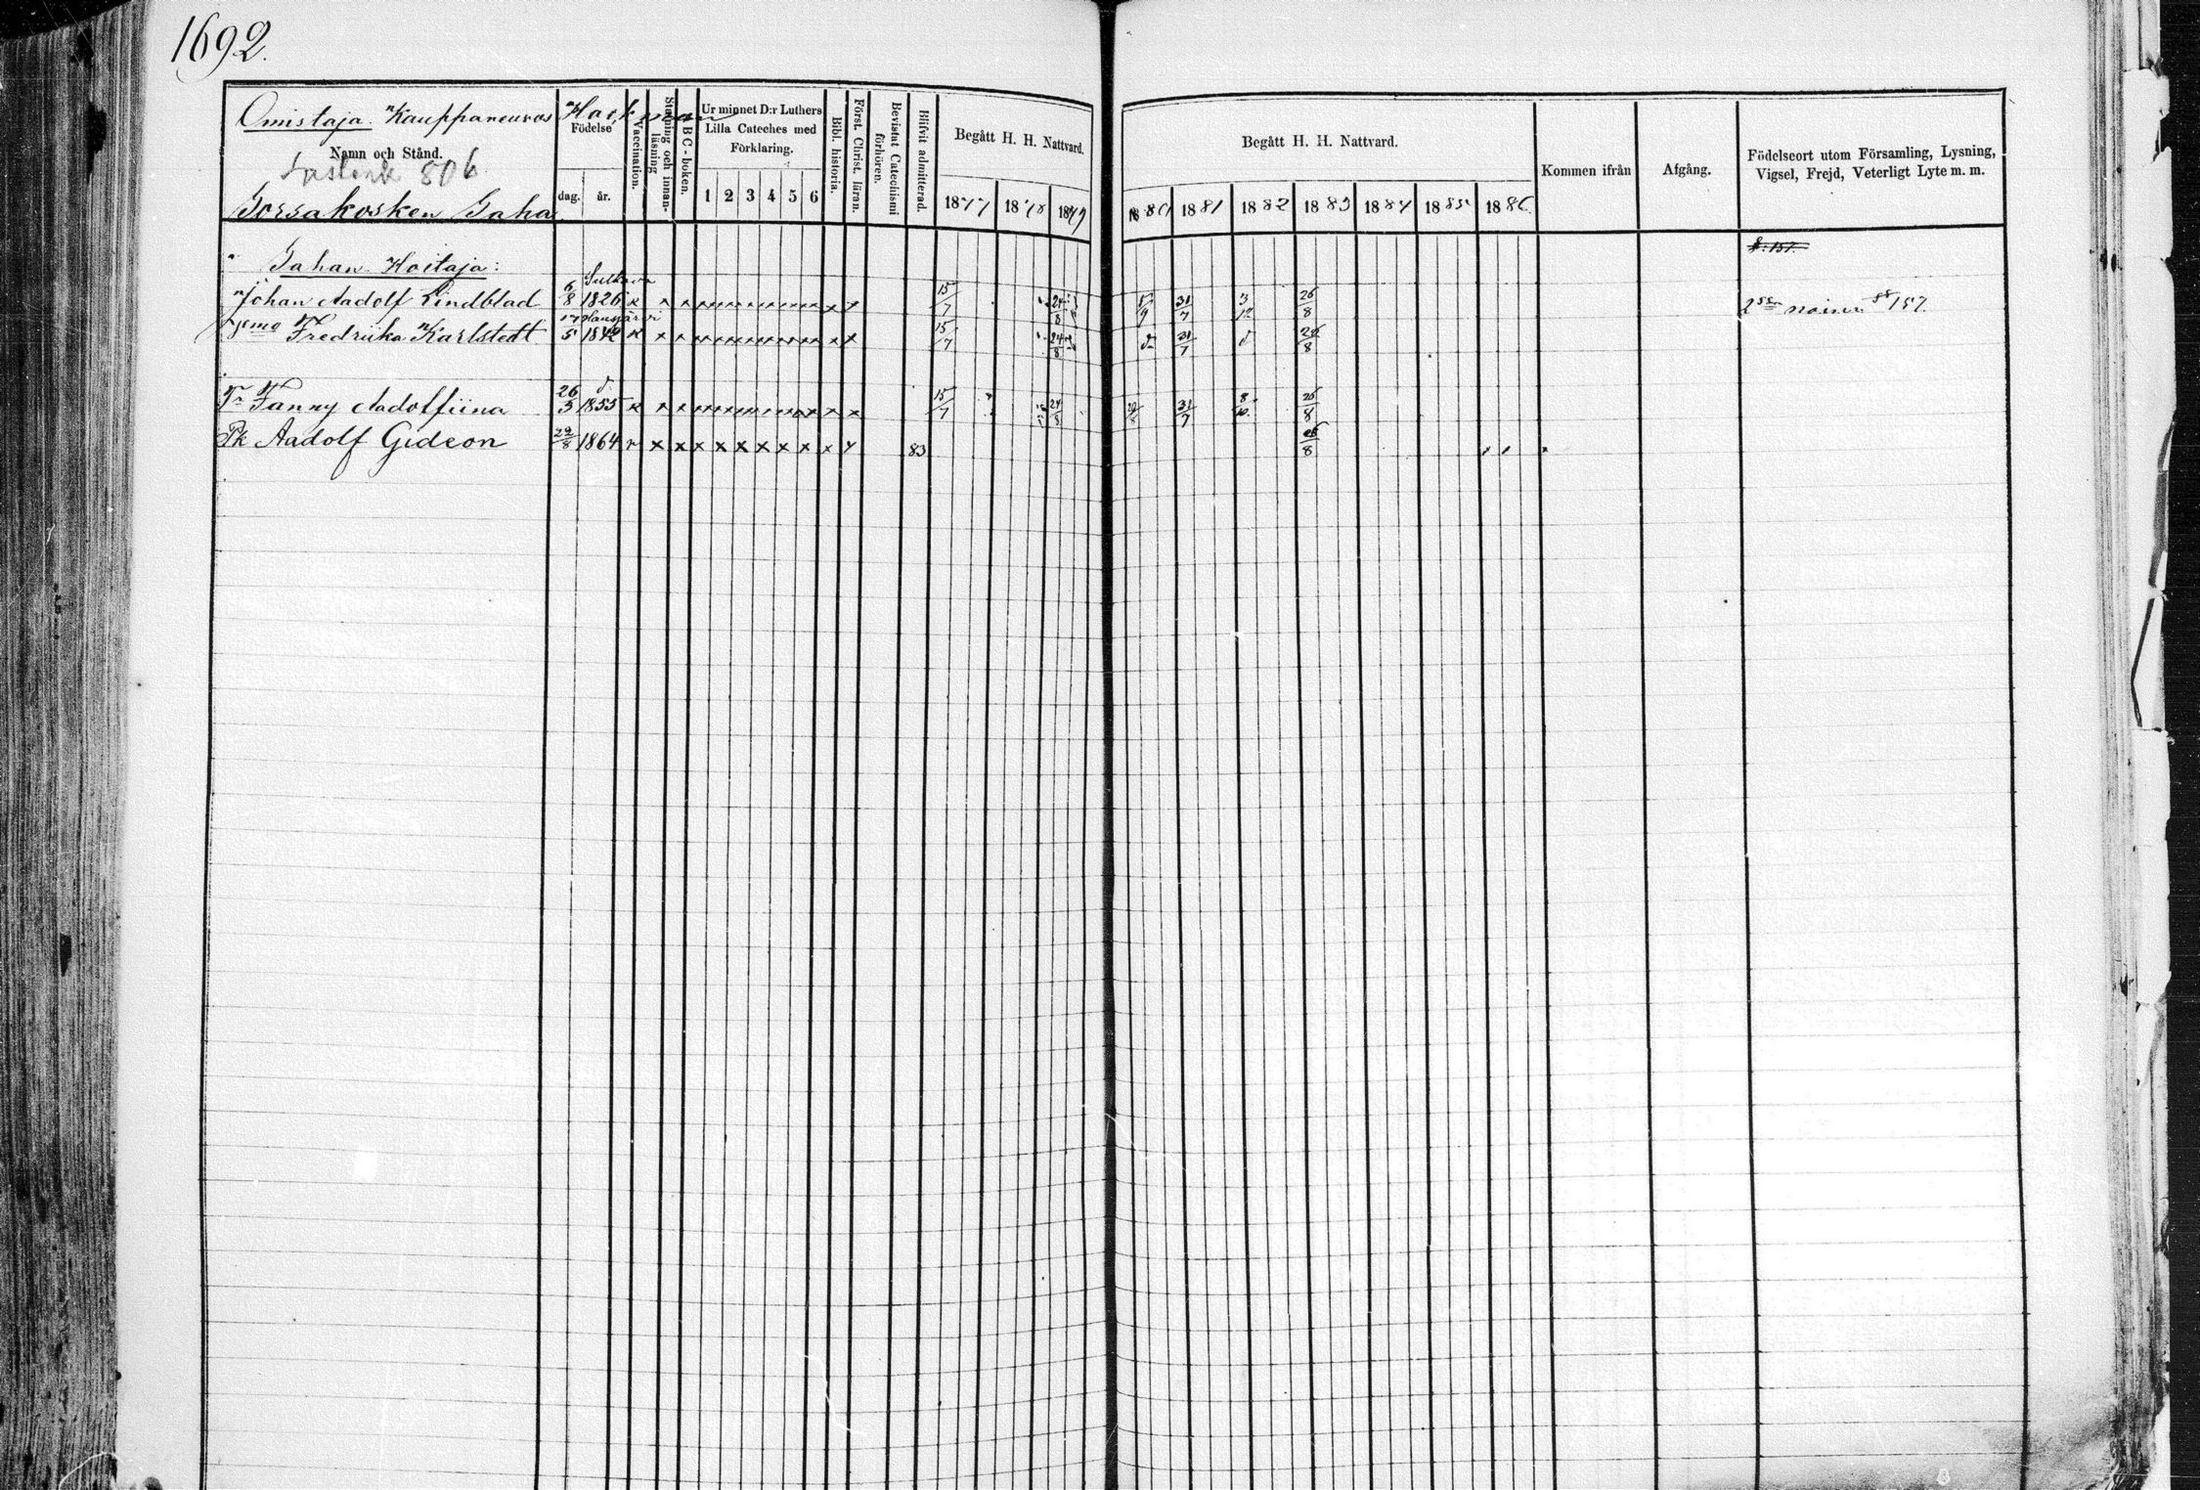 1692.
Omistaja. Kauppaneuvos Hackman
Namn och Stånd.
806
Sorsakosken Saha
Födelse
dag. år.
Vaccination.
Stafning och innan-läsning
ABC-boken.
Ur minnet D:r Luthers
Lilla Cateches med
Förklaring.
1 2 3 4 5 6
Bibl. historia.
Först. Christ. läran.
Bevistat Catechismi förhören.
Blifvit admitterad.
Begått H. H. Nattvard.
1877 1878 1879
Begått H. H. Nattvard.
1880 1881 1882 1883 1884 1885 1886
Kommen ifrån
Afgång.
Födelseort utom Församling, Lysning,
Vigsel, Frejd, Veterligt Lyte m. m.
Sahan Hoitaja:
Sulkava
Johan Aadolf Lindblad 6/8 1826 15/7 24/8 5/9 31/7 3/12 26/8 157.
Hausjärvi
Fredriika Karlstedt 17/5 1842 15/7 24/8 31/7 26/8
Fanny Aadolfiina 26/5 1855 15/7 24/8 31/7 8/10 26/8
Pk Aadolf Gideon 22/8 1864 83 26/8